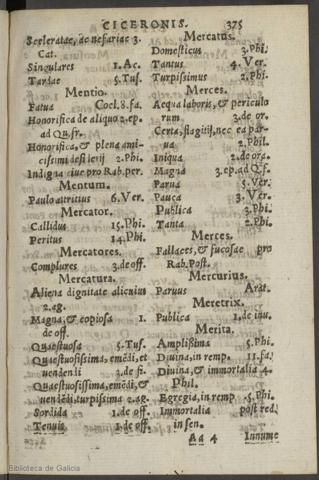 CICERONIS. 375
Sceleratae, ac nefariae 3.
Cat.
Singulares 1. Ac.
Tardae 5. Tus.
Mentio.
Fatua Coel. 8. fa.
Honorifica de aliquo 2. ep.
ad Qu. fr.
Honorifica, & plena ami-
cissimi desiderij 2. Phi.
Indigna tuae pro Rab. per.
Mentum.
Paulo attritius 6. Ver.
Mercator.
Callidus 15. Phi.
Peritus 14. Phi.
Mercatores.
Complures 3. de off.
Mercatura.
Aliena dignitate alicuius
2. ag.
Magna, & copiosa 1.
de off.
Quaestuosa 5. Tus.
Quaestuosissima, emēdi, et
uendendi 3. de fi.
Quaestuosissima, emēdi, &
uendēdi, turpissima 2. ag.
Sordida 1. de off.
Tenuis 1. de off.
Mercatus.
Domesticus 3. Phi.
Tantus 4. Ver.
Turpissimus 2. Phi.
Merces.
Aequa laboris, & periculo
rum 3. de or.
Certa, flagitij, nec ea par-
ua 2. Phil.
Iniqua 2. de ora.
Magna 3. ep. ad Q. f.
Parua 5. Ver.
Pauca 3. Ver.
Publica 3. Phi.
Tanta 2. Phi.
Merces.
Fallaces, & fucosae pro
Rab. Post.
Mercurius.
Paruus Arat.
Meretrix.
Publica 1. de inu.
Merita.
Amplissima 5. Phi.
Diuina, in remp. 11. fa.
Diuina, & immortalia 4.
Phil.
Egregia, in remp. 5. Phi.
Immortalia post red.
in sen.
Aa 4 Innume
Biblioteca de Galicia